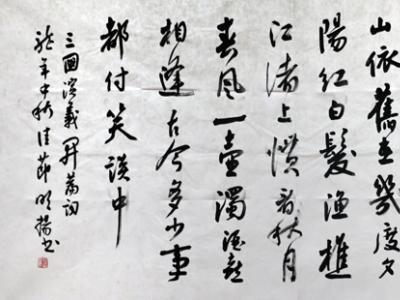 山依舊在幾度夕
陽紅白髮漁樵
江渚上慣看秋月
春風一壺濁酒喜
相逢古今多少事
都付笑談中
三國演義開篇詞
龍年中秋佳節明揚書